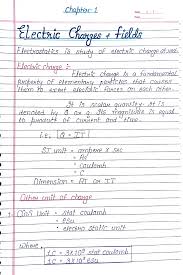 Chapter-1
Electric Charges + fields
Electrostatics is study of electric charge at rest.
Electric charge :-
Electric charge is a fundamental
property of elementary particles that causes
them to exert electric forces on each other.
It is scalar quantity. it is
denoted by Q or q. Its magnitude is equal
to product of current and time.
i.e, Q = IT
SI unit = ampere x sec
= As
= Coulomb
= C
Dimension = AT or IT
Other unit of charge
CGS Unit - stat coulomb
- esu
- electro static unit
where,
1C = 3×10⁹ stat coulomb
1C = 3×10⁹ esu